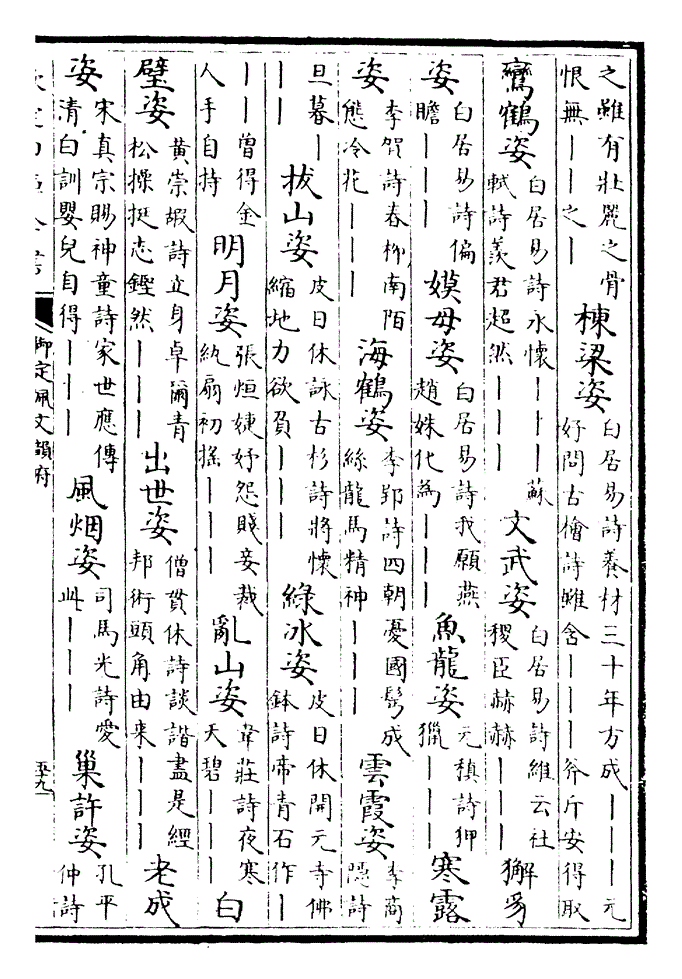 之雖有壯麗之骨恨無——之—棟梁姿白居易詩養材三十年方成———元好問古檜詩雖含———斧斤安得取
鸞鶴姿白居易詩永懷———蘇軾詩羨君超然———文武姿白居易詩維云社稷臣赫赫———獬豸
姿白居易詩偏瞻———嫫母姿白居易詩我願燕趙姝化為———魚龍姿元稹詩狎獵———寒露
姿李賀詩春柳南陌態冷花———海鶴姿李郢詩四朝憂國鬂成絲龍馬精神———雲霞姿李商隱詩
旦暮———拔山姿皮日休詠古杉詩將懷縮地力欲負———綠冰姿皮日休開元寺佛鉢詩帝青石作—
——曾得金人手自持明月姿張烜婕妤怨賤妾裁紈扇初摇———亂山姿韋莊詩夜寒天碧———白
璧姿黄崇嘏詩立身卓爾青松操挺志鏗然———出世姿僧貫休詩談諧盡是經邦術頭角由来———老成
姿宋真宗賜神童詩家世應傳清白訓嬰兒自得———風烟姿司馬光詩愛此———巢許姿孔平仲詩
御定佩文韻府